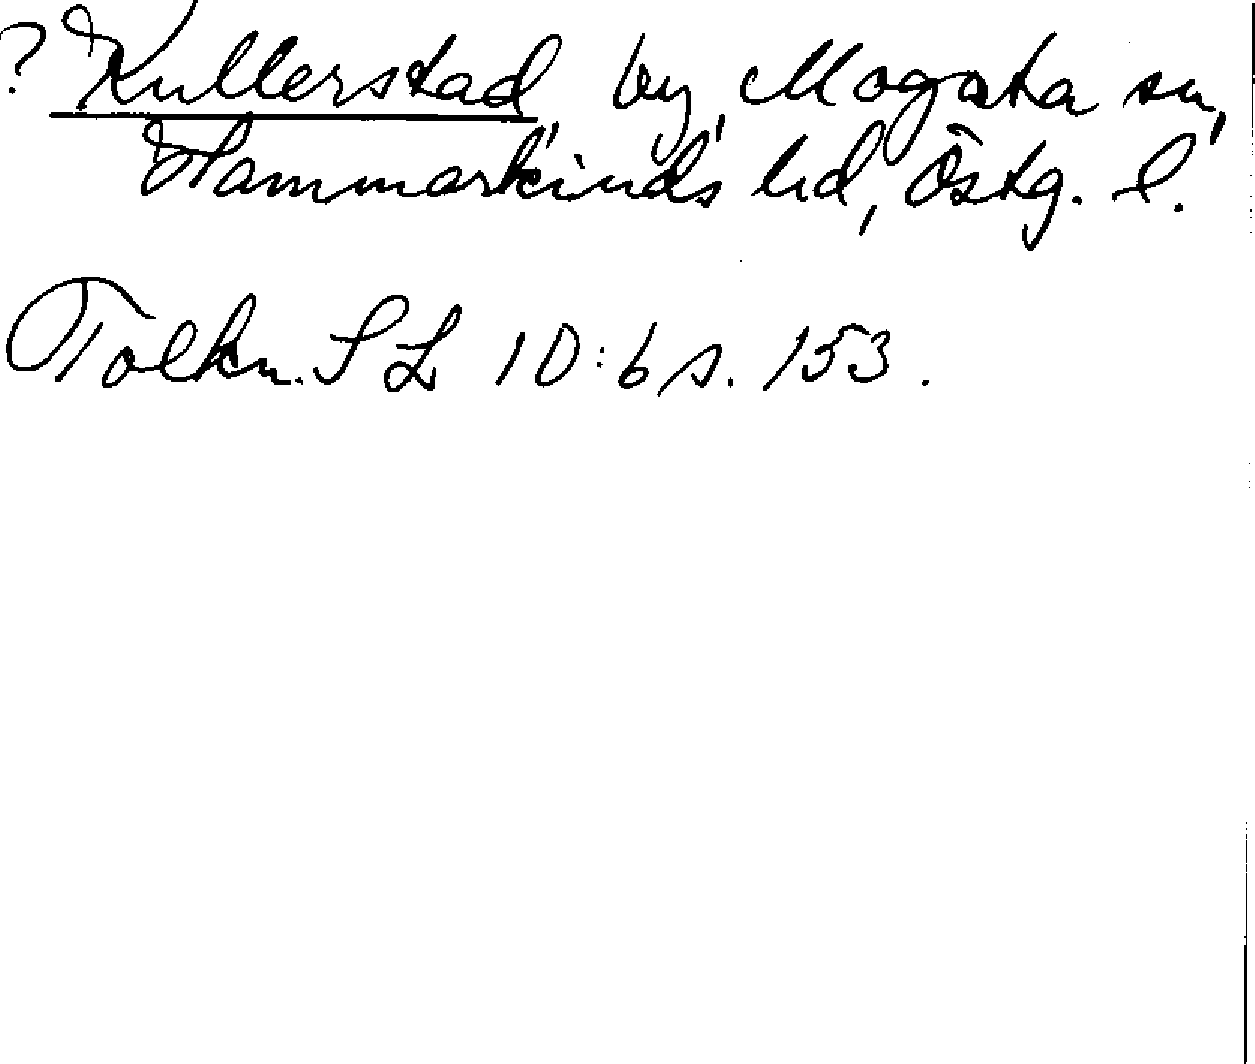 ? Kullerstad, by, Mogata sn,
Hammarkinds hd, Östg. l.
Tolkn. SL 10:6 s. 153.